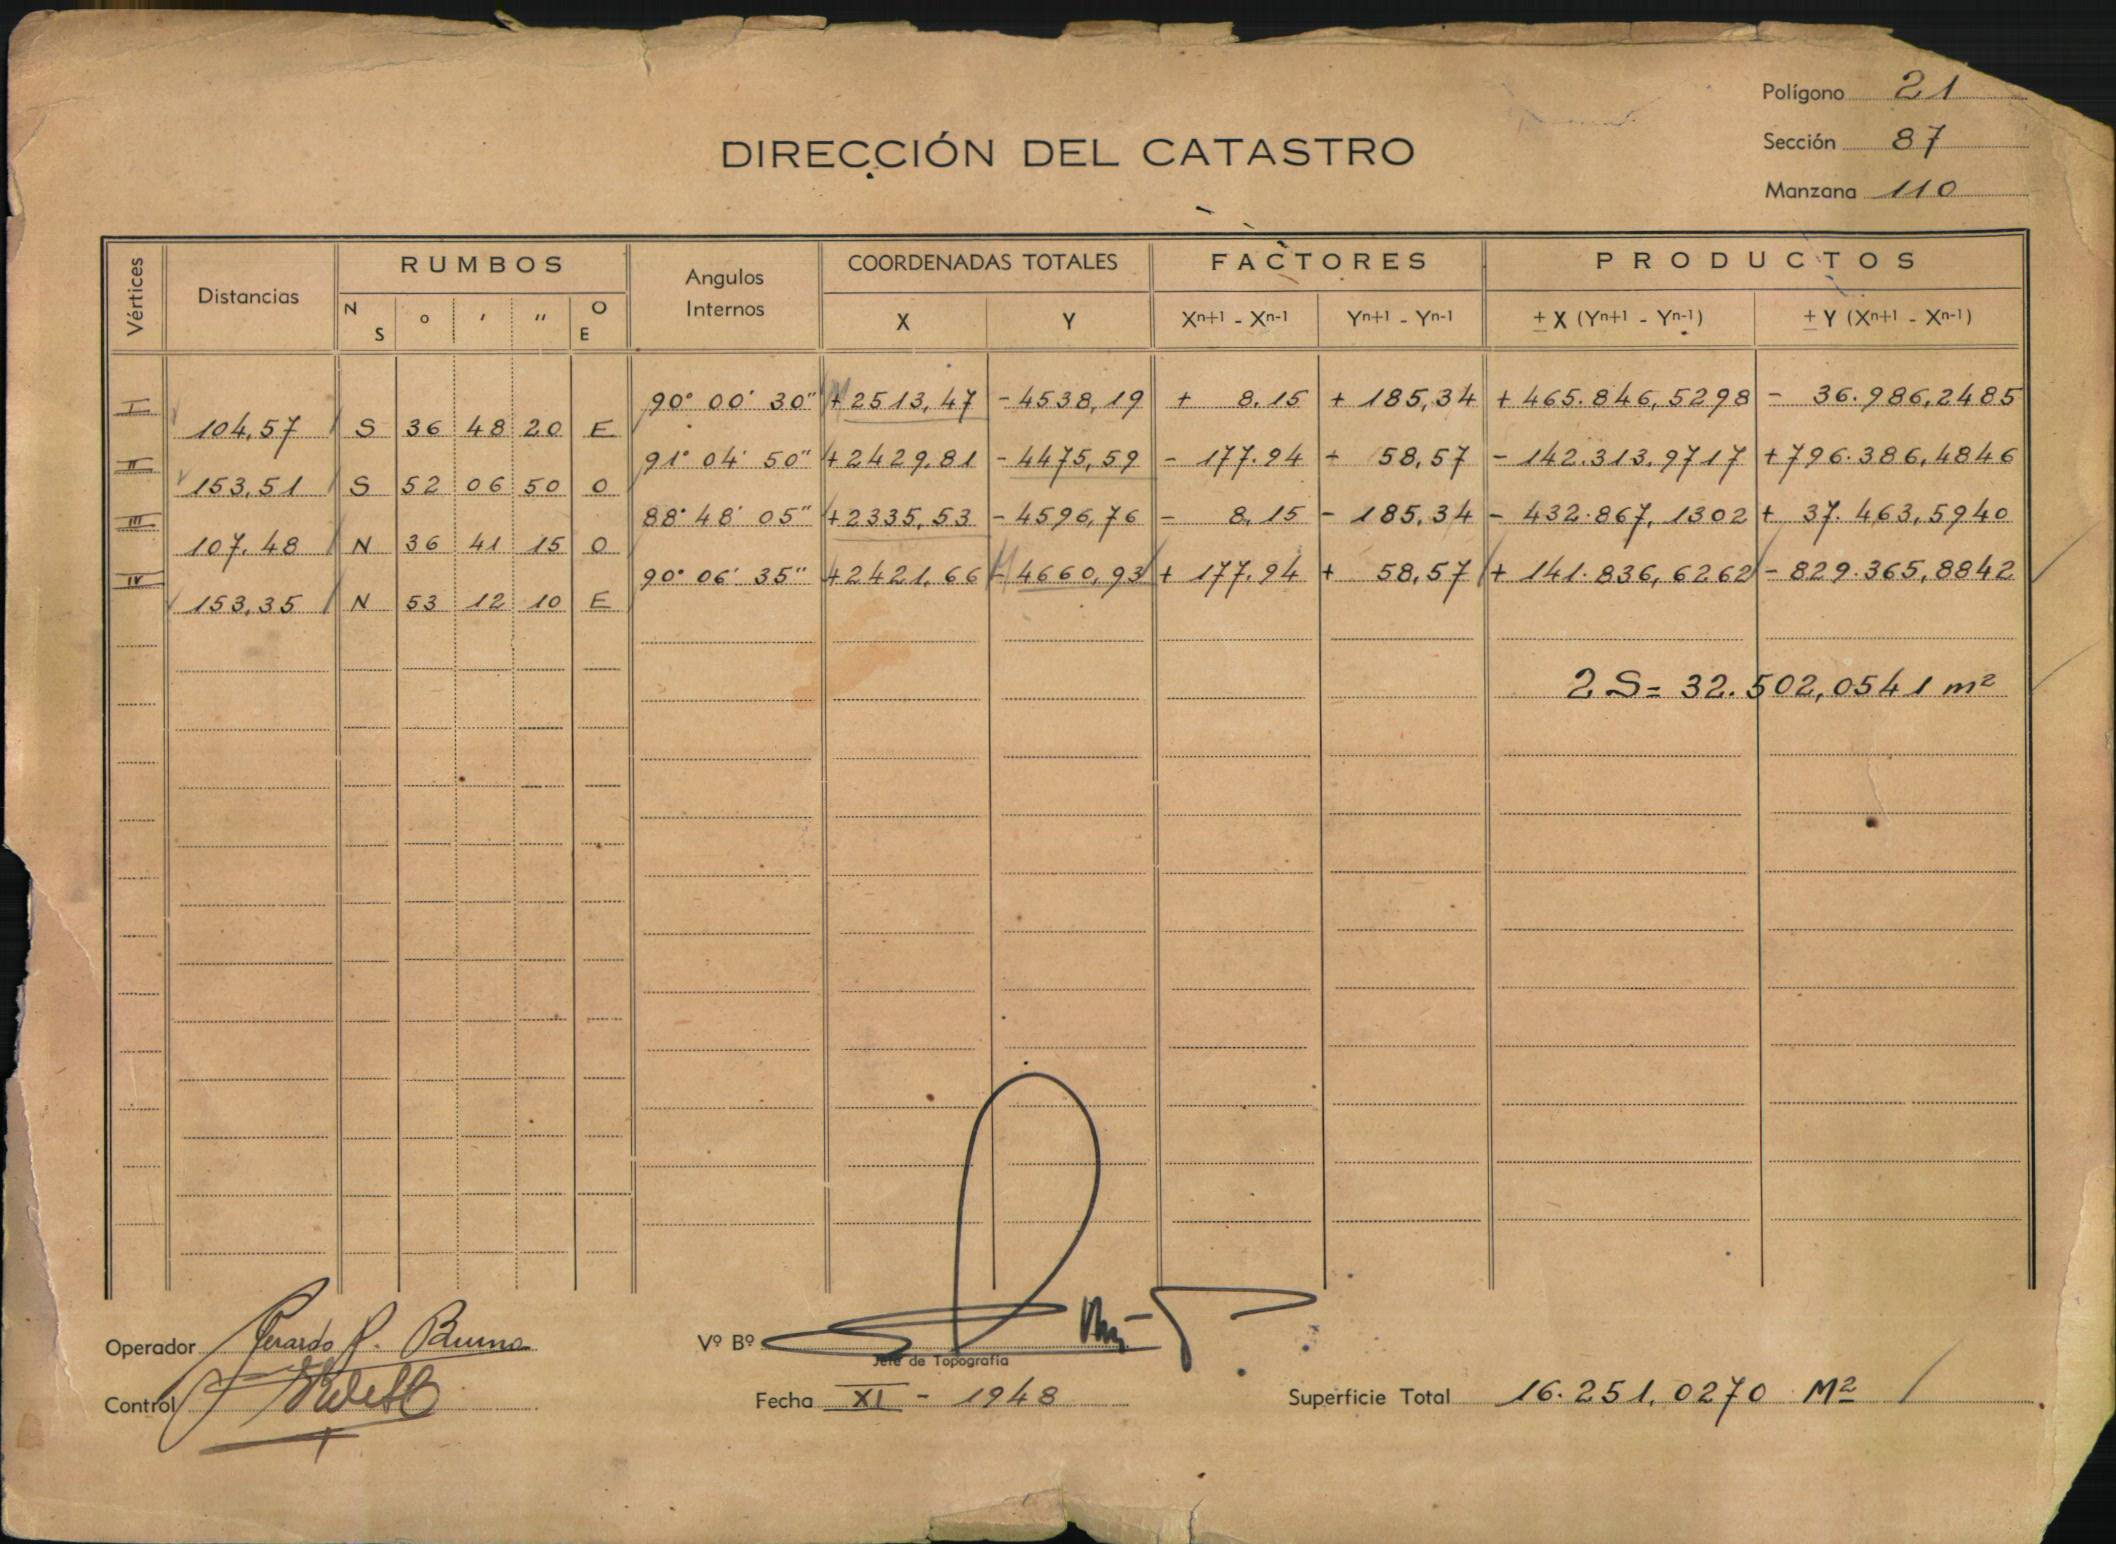 Polígono 21
DIRECCIÓN DEL CATASTRO
Sección 87
Manzana 110
Vértices Distancias RUMBOS Angulos Internos COORDENADAS TOTALES FACTORES PRODUCTOS
N S ° ' " O E X Y Xn+1 - Xn-1 Yn+1 - Yn-1 ± X (Yn+1 - Yn-1) ± Y (Xn+1 - Xn-1)
I 90° 00' 30" +2513,47 -4538,19 + 8,15 + 185,34 +465.846,5298 - 36.986,2485
104,57 S 36 48 20 E
II 91° 04' 50" +2429,81 -4475,59 - 177.94 + 58,57 - 142.313,9717 +796.386,4846
153,51 S 52 06 50 O
III 88° 48' 05" +2335,53 -4596,76 - 8,15 - 185,34 - 432.867,1302 + 37.463,5940
107.48 N 36 41 15 O
IV 90° 06' 35" +2421,66 -4660,93 + 177.94 + 58,57 + 141.836,6262 - 829.365,8842
153,35 N 53 12 10 E
2S = 32.502,0541 m²
Operador Gerardo P. Bruno Vº Bº
Jefe de Topografía
Control Fecha XI - 1948 Superficie Total 16.251,0270 M²